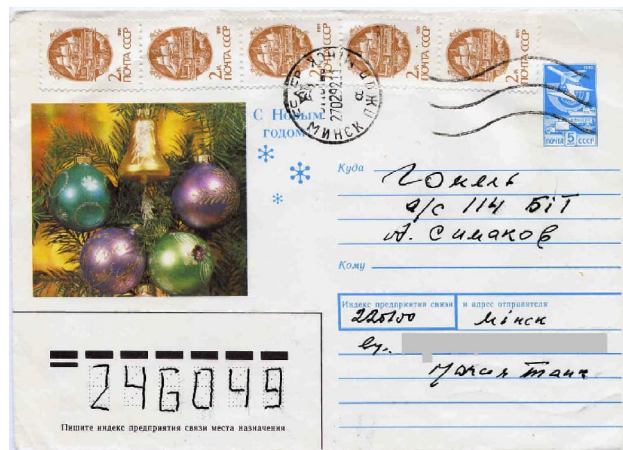 2к 1988 ПОЧТА СССР
2к ПОЧТА СССР
2к ПОЧТА СССР
2к ПОЧТА СССР
2к ПОЧТА СССР
МИНСК
270292
ПОЧТА 5 СССР
С Новым
годом!
Куда Гомель
а/с 114 БІТ
А. Симаков
Кому
Индекс предприятия связи и адрес отправителя
220100 Мінск
вул.
Максим Танк
246049
Пишите индекс предприятия связи места назначения